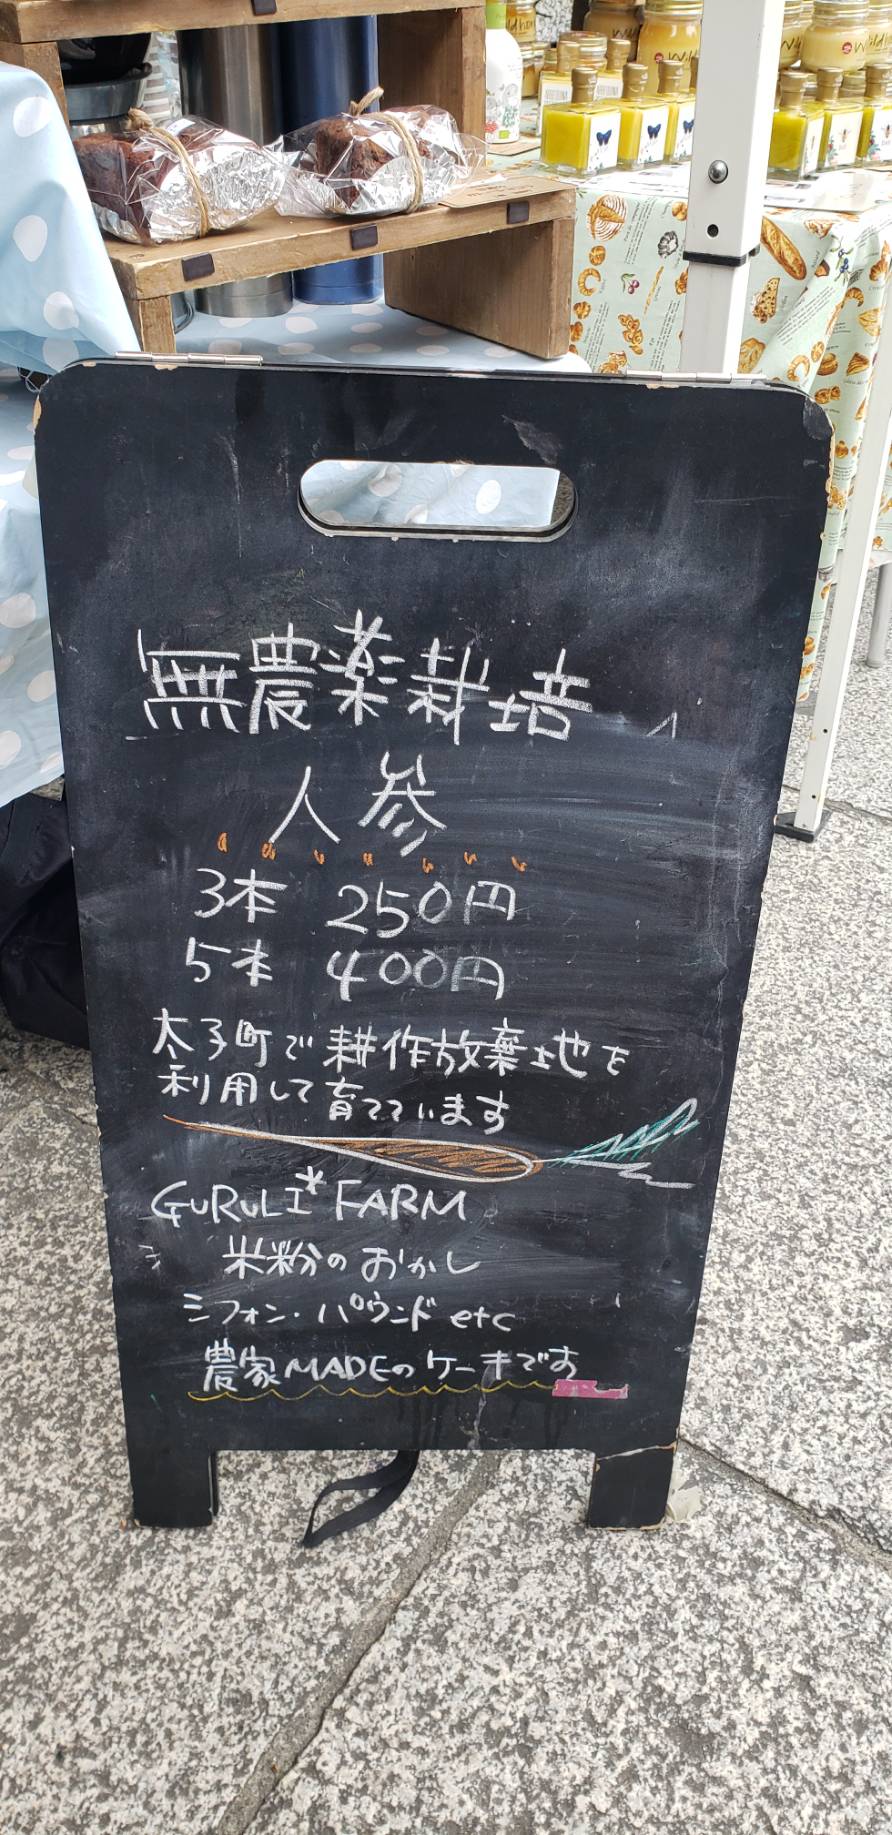 無農薬栽培
人参
3本 250円
5本 400円
太子町で耕作放棄地を
利用して育てています
GURULI* FARM
米粉のおかし
シフォン・パウンド etc
農家MADEのケーキです